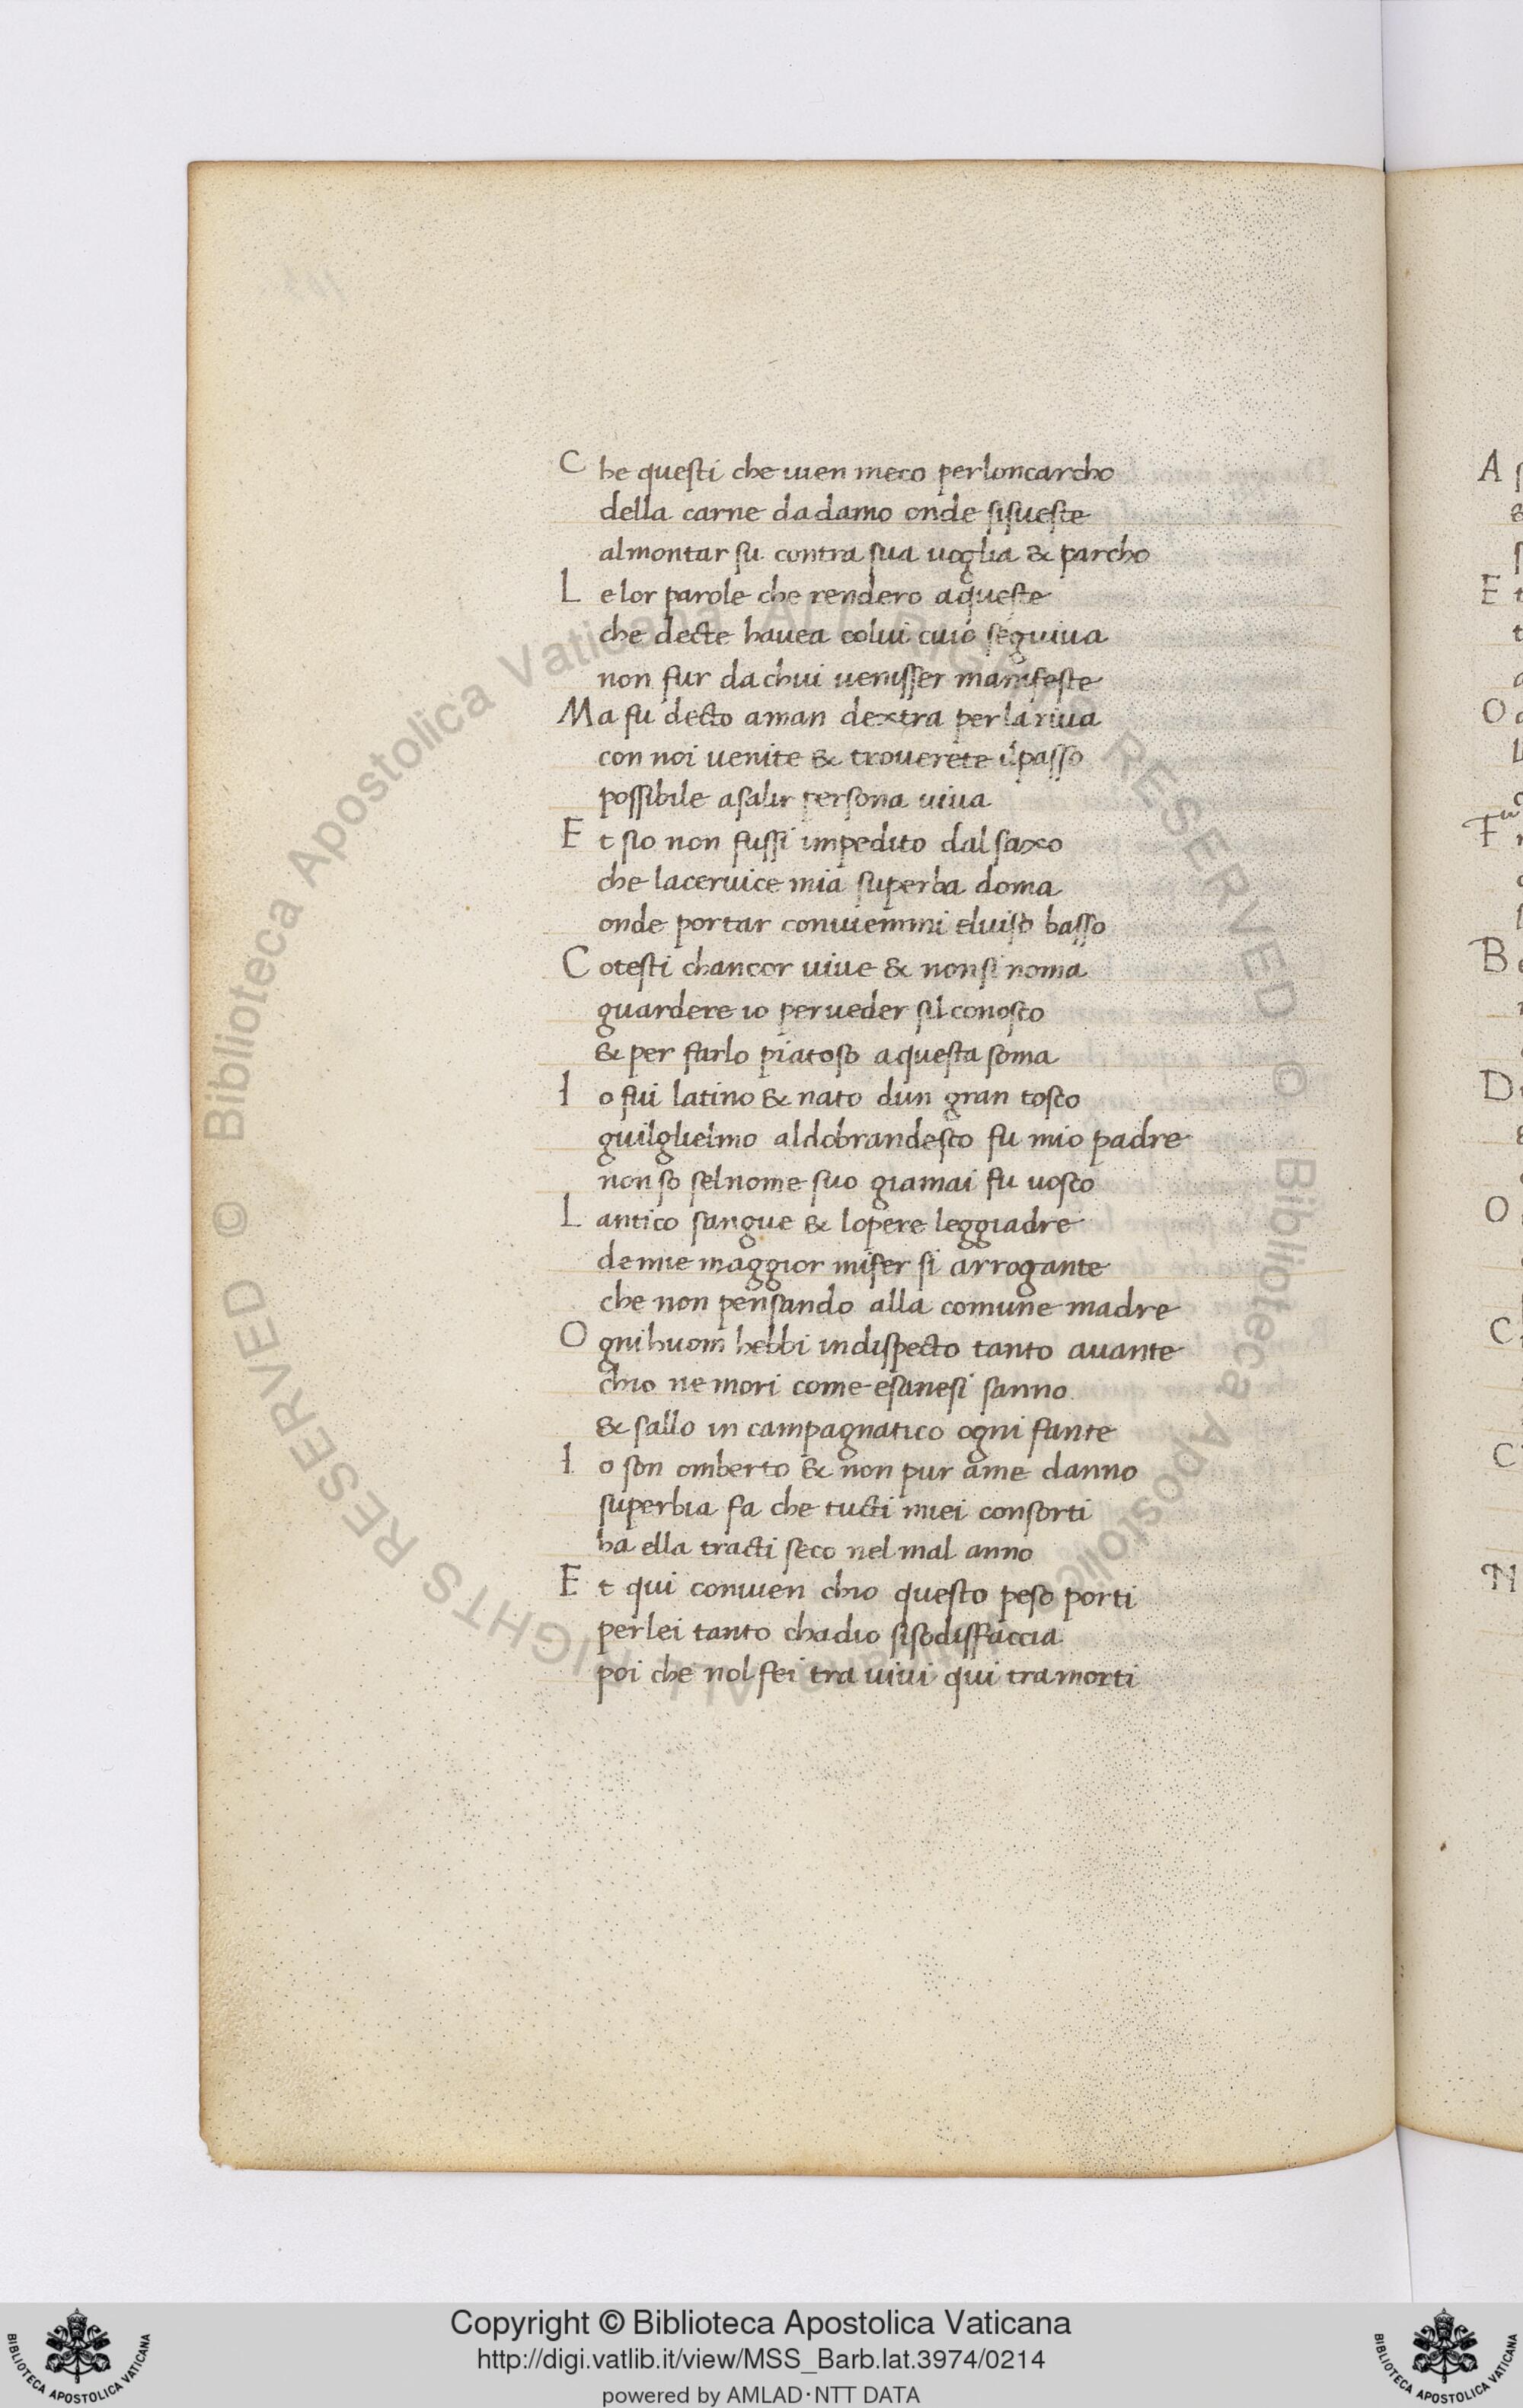 C he questi che uien meco perloncarcho
della carne dadamo onde sisueste
almontar su contra sua uoglia & parcho
L e lor parole che rendero aqueste
che decte hauea colui cuio seguiua
non fur da chui uenisser manifeste
M a fu decto aman dextra perlariua
con noi uenite & trouerete ilpasso
possibile asalir persona uiua
E t sio non fussi impedito dal saxo
che laceruice mia superba doma
onde portar conuiemmi eluiso basso
C otesti chancor uiue & nonsi noma
guardere io perueder sil conosco
& per farlo piatoso aquesta soma
I o fui latino & nato dun gran tosco
guilglielmo aldobrandesco fu mio padre
non so selnome suo giamai fu uosco
L antico sangue & lopere leggiadre
de mie maggior mifer si arrogante
che non pensando alla comune madre
O gnihuom hebbi indispecto tanto auante
chio ne mori come esanesi sanno
& sallo in campagnatico ogni fante
I o son omberto & non pur ame danno
superbia fa che tucti miei consorti
ha ella tracti seco nel mal anno
E t qui conuien chio questo peso porti
perlei tanto chadio sisodisfaccia
poi che nol fei tra uiui qui tra morti
A
E
O
F
B
D
O
C
C
N
© Biblioteca Apostolica Vaticana ALL RIGHTS RESERVED
© Biblioteca Apostolica Vaticana ALL RIGHTS RESERVED
Copyright © Biblioteca Apostolica Vaticana
http://digi.vatlib.it/view/MSS_Barb.lat.3974/0214
powered by AMLAD·NTT DATA
BIBLIOTECA APOSTOLICA VATICANA
BIBLIOTECA APOSTOLICA VATICANA